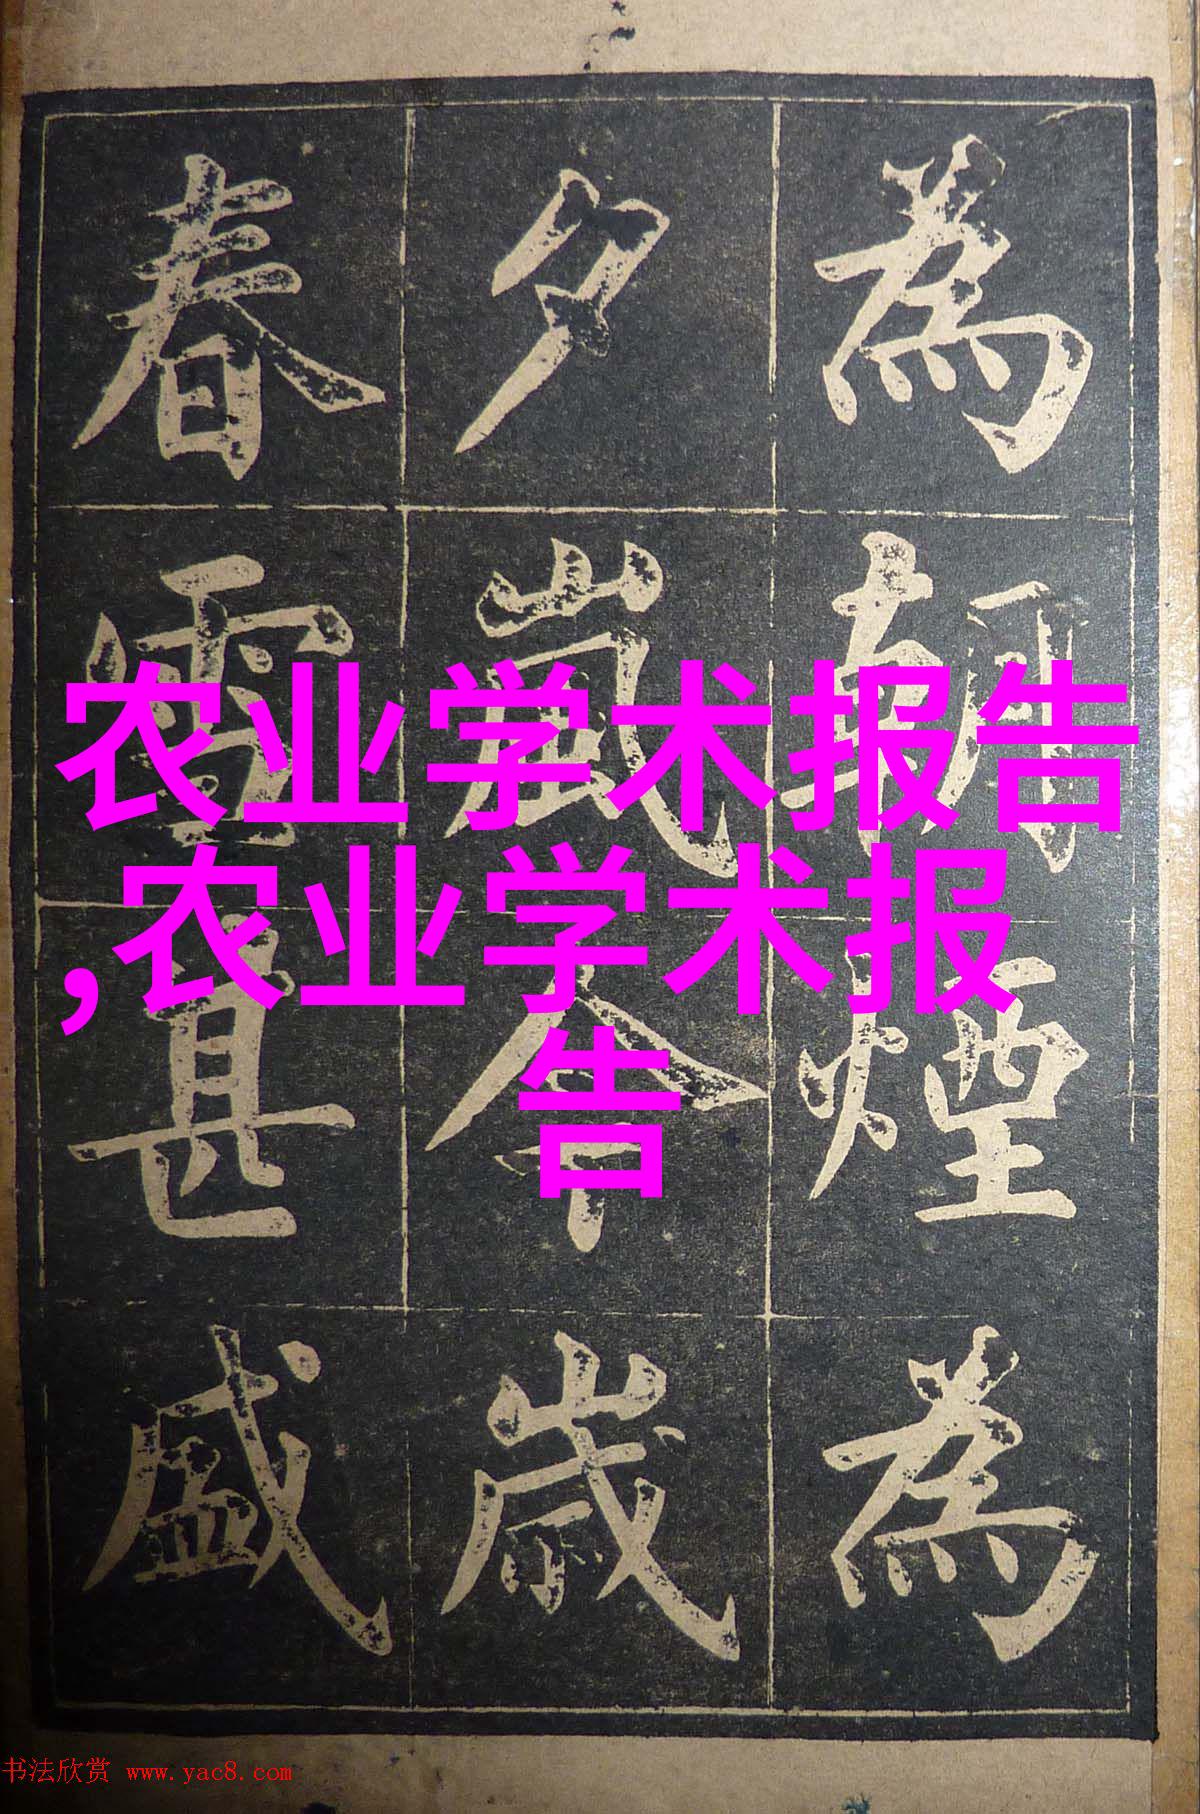 為朝煙為
夕嵐今歲
春雪甚盛
农业学术报告
,农业学术报
告
书法欣赏 www.yac8.com